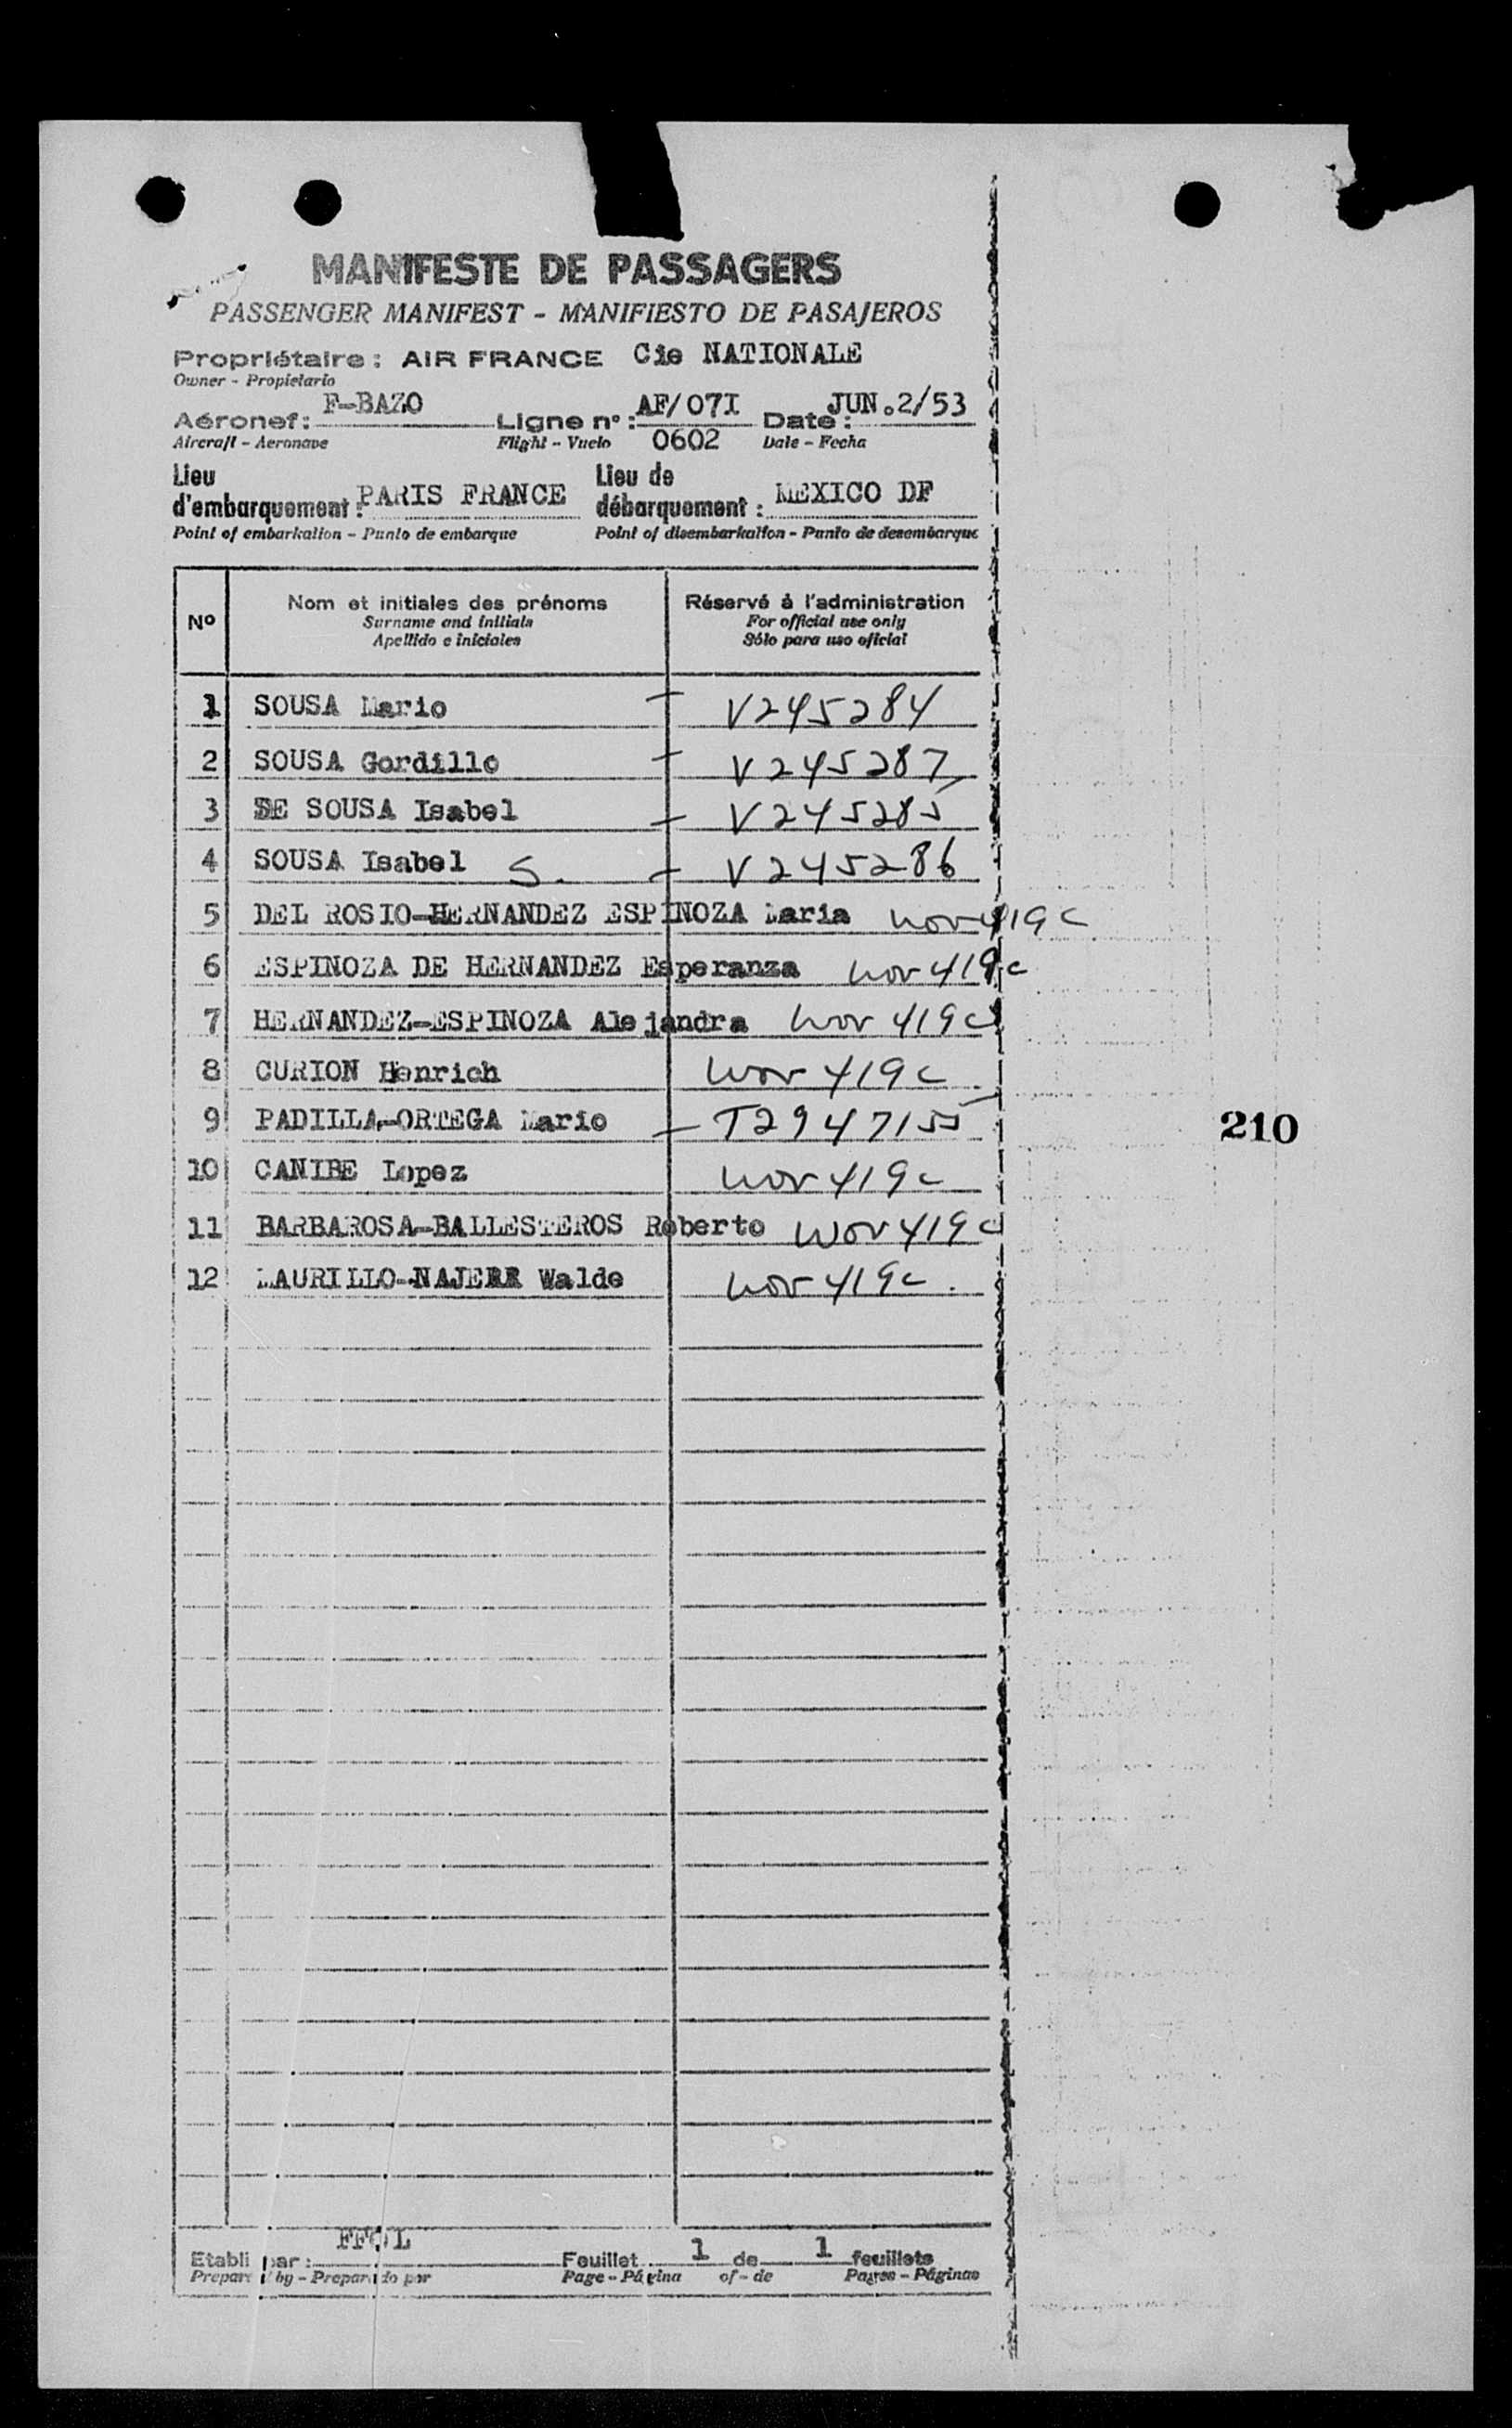 MANIFESTE DE PASSAGERS
PASSENGER MANIFEST - MANIFIESTO DE PASAJEROS
Propriétaire : AIR FRANCE Cie NATIONALE
Owner - Propietario
Aéronef : F-BAZO Ligne n° : AF/07I Date : JUN.2/53
Aircraft - Aeronave Flight - Vuelo 0602 Date - Fecha
Lieu d'embarquement : PARIS FRANCE Lieu de débarquement : MEXICO DF
Point of embarkation - Punto de embarque Point of disembarkation - Punto de desembarque
Nº Nom et initiales des prénoms Réservé à l'administration
Surname and initials For official use only
Apellido e iniciales Sólo para uso oficial
1 SOUSA Mario - V245284
2 SOUSA Gordillo - V245287
3 DE SOUSA Isabel - V245285
4 SOUSA Isabel S. - V245286
5 DEL ROSIO-HERNANDEZ ESPINOZA Maria 419c
6 ESPINOZA DE HERNANDEZ Esperanza 419c
7 HERNANDEZ-ESPINOZA Alejandra 419c
8 CURION Henrich 419c
9 PADILLA-ORTEGA Mario - T2947155
210
10 CANIBE Lopez 419c
11 BARBAROSA-BALLESTEROS Roberto 419c
12 MAURILLO-NAJERR Walde 419c.
Etabli par : Feuillet 1 de 1 feuillets
Prepared by - Preparado por Page - Página of - de Pages - Páginas